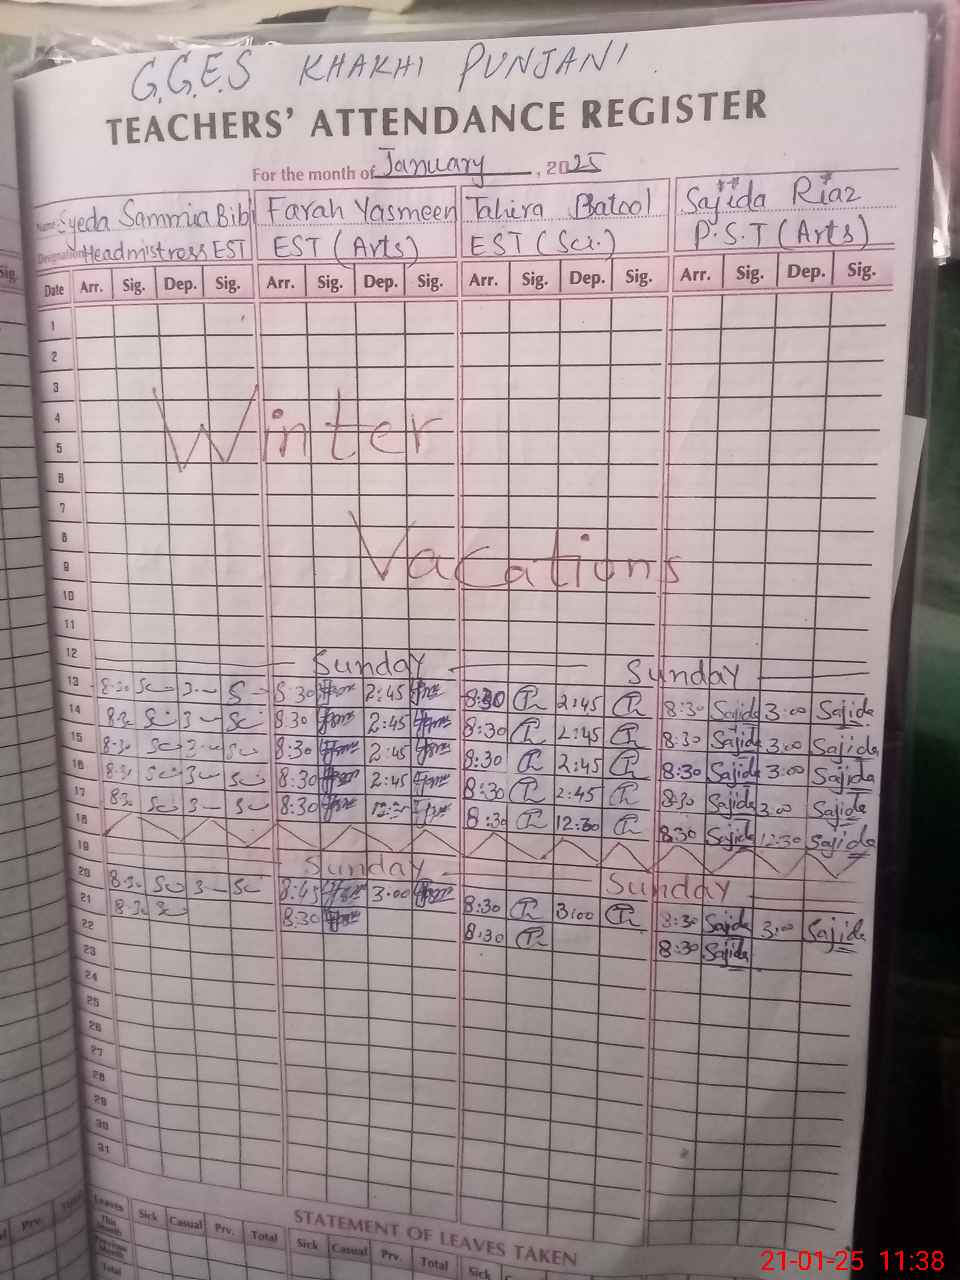 G.G.E.S KHAKHI PUNJANI.
TEACHERS' ATTENDANCE REGISTER
For the month of January, 2025
Name Syeda Sammia Bibi Farah Yasmeen Tahira Batool Sajida Riaz
Designation Headmistress EST EST (Arts) EST (Sci.) P.S.T (Arts)
Sig.
Date Arr. Sig. Dep. Sig. Arr. Sig. Dep. Sig. Arr. Sig. Dep. Sig. Arr. Sig. Dep. Sig.
1
2
3
4
Winter
5
6
7
8
Vacations
9
10
11
12 Sunday Sunday
13 8:30 3 8:30 2:45 8:30 2:45 8:30 Sajida 3:00 Sajida
14 8:30 3 8:30 2:45 8:30 2:45 8:30 Sajida 3:00 Sajida
15 8:30 3 8:30 2:45 8:30 2:45 8:30 Sajida 3:00 Sajida
16 8:30 3 8:30 2:45 8:30 2:45 8:30 Sajida 3:00 Sajida
17 8:30 3 8:30 8:30 12:30 8:30 Sajida 12:30 Sajida
18
19 Sunday Sunday
20 8:30 3 8:45 3:00 8:30 3:00 8:30 Sajida 3:00 Sajida
21 8:30 8:30 8:30 8:30 Sajida
22
23
24
25
26
27
28
29
30
31
STATEMENT OF LEAVES TAKEN
Leaves Sick Casual Prv. Total Sick Casual Prv. Total Sick
This Month
Previous Month
Total
Prv.
21-01-25 11:38